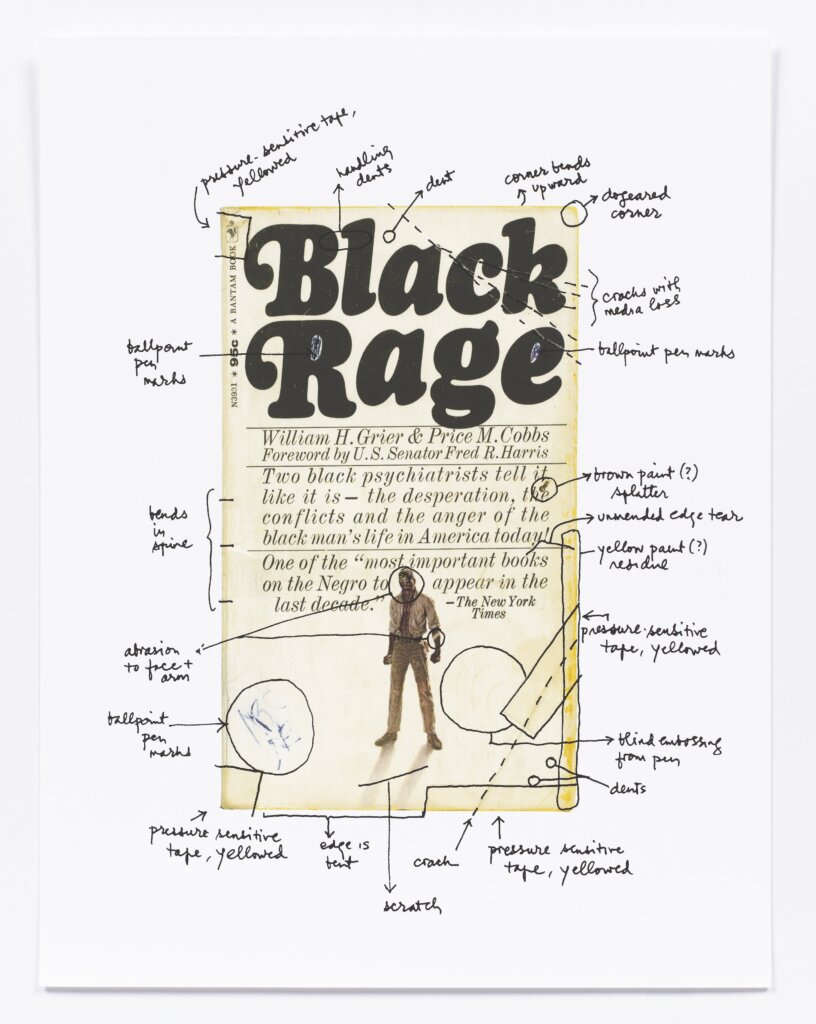 pressure-sensitive tape,
yellowed
handling
dents
dent
corner bends
upward
dogeared
corner
Black
Rage
A BANTAM BOOK
* 95c *
N3931
cracks with
media loss
ballpoint
pen
marks
ballpoint pen marks
William H. Grier & Price M. Cobbs
Foreword by U.S. Senator Fred R. Harris
Two black psychiatrists tell it
like it is — the desperation, the
conflicts and the anger of the
black man's life in America today!
One of the “most important books
on the Negro to appear in the
last decade.”
—The New York
Times
brown paint(?)
splatter
unmended edge tear
yellow paint(?)
residue
bends
in
spine
pressure-sensitive
tape, yellowed
abrasion
to face +
arm
ballpoint
pen
marks
blind embossing
from pen
dents
pressure sensitive
tape, yellowed
edge is
bent
crack
pressure sensitive
tape, yellowed
scratch